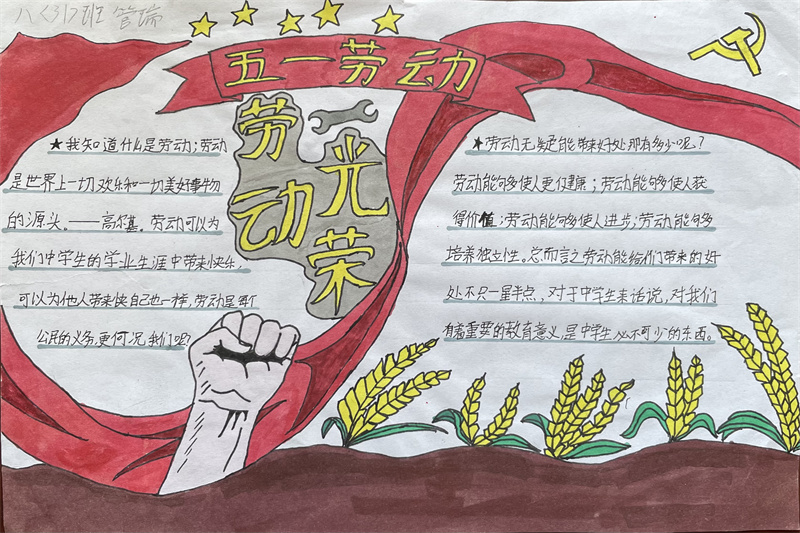 八(3)班 管瑞
五一劳动
劳动
一光荣
★我知道什么是劳动;劳动
是世界上一切欢乐和一切美好事物
的源头。——高尔基。劳动可以为
我们中学生的学业生涯中带来快乐,
可以为他人带来快自己也一样,劳动是每个
公民的义务更何况我们呢?
★劳动无疑能带来好处那有多少呢?
劳动能够多使人更加健康;劳动能够多使人获
得价值;劳动能够多使人进步;劳动能够多
培养独立性。总而言之劳动能给们带来的好
处不只一星半点,对于中学生来话说,对我们
有着重要的教育意义,是中学生必不可少的东西。